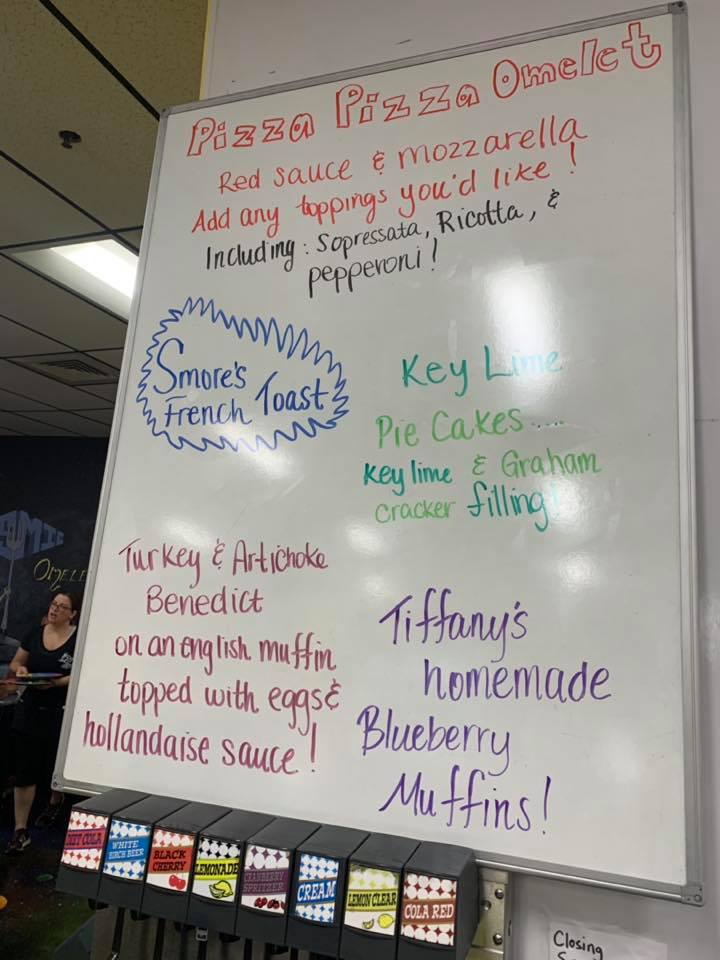 Pizza Pizza Omelet
Red sauce & mozzarella
Add any toppings you'd like!
Including: Sopressata, Ricotta, &
pepperoni!
Smore's
French Toast
Key Lime
Pie Cakes....
Key lime & Graham
cracker filling!
Turkey & Artichoke
Benedict
on an english muffin
topped with eggs &
hollandaise sauce!
Tiffany's
homemade
Blueberry
Muffins!
DIET COLA
WHITE
BIRCH BEER
BLACK
CHERRY
LEMONADE
CRANBERRY
SPRITZER
CREAM
LEMON CLEAR
COLA RED
Closing